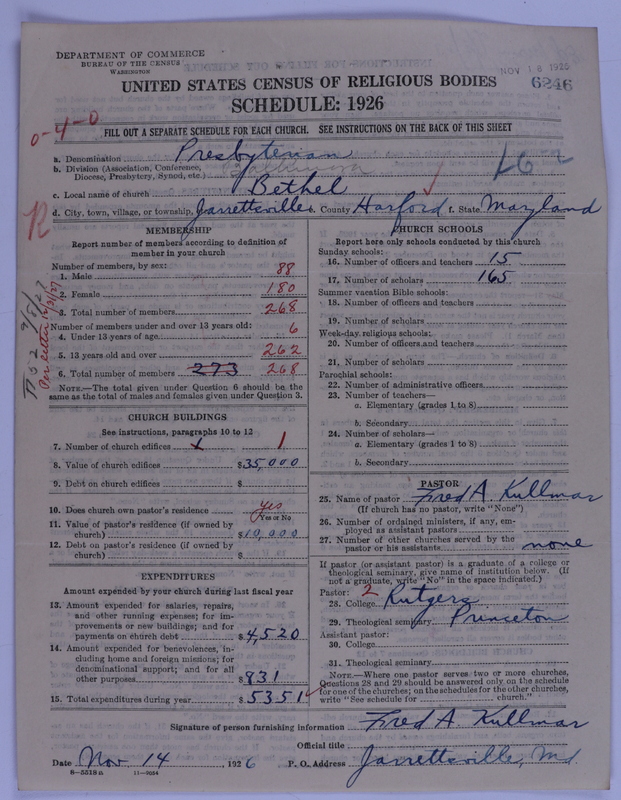 DEPARTMENT OF COMMERCE
BUREAU OF THE CENSUS
WASHINGTON
NOV 18 1926
6246
UNITED STATES CENSUS OF RELIGIOUS BODIES
SCHEDULE: 1926
0-4-0
FILL OUT A SEPARATE SCHEDULE FOR EACH CHURCH. SEE INSTRUCTIONS ON THE BACK OF THIS SHEET
a. Denomination Presbyterian
b. Division (Association, Conference, Diocese, Presbytery, Synod, etc.) Baltimore
c. Local name of church Bethel
d. City, town, village, or township, Jarrettsville e. County Harford f. State Maryland
MEMBERSHIP
Report number of members according to definition of
member in your church
Number of members, by sex:
1. Male 88
2. Female 180
3. Total number of members 268
Number of members under and over 13 years old:
4. Under 13 years of age 6
5. 13 years old and over 262
6. Total number of members 273 268
NOTE.—The total given under Question 6 should be the
same as the total of males and females given under Question 3.
CHURCH BUILDINGS
See instructions, paragraphs 10 to 12
7. Number of church edifices 1 1
8. Value of church edifices $35,000
9. Debt on church edifices $
10. Does church own pastor's residence yes
(Yes or No)
11. Value of pastor's residence (if owned by
church) $10,000
12. Debt on pastor's residence (if owned by
church) $
EXPENDITURES
Amount expended by your church during last fiscal year
13. Amount expended for salaries, repairs,
and other running expenses; for im-
provements or new buildings; and for
payments on church debt $4,520
14. Amount expended for benevolences, in-
cluding home and foreign missions; for
denominational support; and for all
other purposes $831
15. Total expenditures during year $5351
CHURCH SCHOOLS
Report here only schools conducted by this church
Sunday schools:
16. Number of officers and teachers 15
17. Number of scholars 165
Summer vacation Bible schools:
18. Number of officers and teachers
19. Number of scholars
Week-day religious schools:
20. Number of officers and teachers
21. Number of scholars
Parochial schools:
22. Number of administrative officers
23. Number of teachers—
a. Elementary (grades 1 to 8)
b. Secondary
24. Number of scholars—
a. Elementary (grades 1 to 8)
b. Secondary
PASTOR
25. Name of pastor Fred A. Kullmar
(If church has no pastor, write "None")
26. Number of ordained ministers, if any, em-
ployed as assistant pastors
27. Number of other churches served by the
pastor or his assistants none
If pastor (or assistant pastor) is a graduate of a college or
theological seminary, give name of institution below. (If
not a graduate, write "No" in the space indicated.)
Pastor: 2
28. College Rutgers
29. Theological seminary Princeton
Assistant pastor:
30. College
31. Theological seminary
NOTE.—Where one pastor serves two or more churches,
Questions 28 and 29 should be answered only on the schedule
for one of the churches; on the schedules for the other churches,
write "See schedule for church."
Signature of person furnishing information Fred A. Kullmar
Official title
Date Nov. 14, 1926 P. O. Address Jarrettsville, Md.
8—5518 a 11—9054